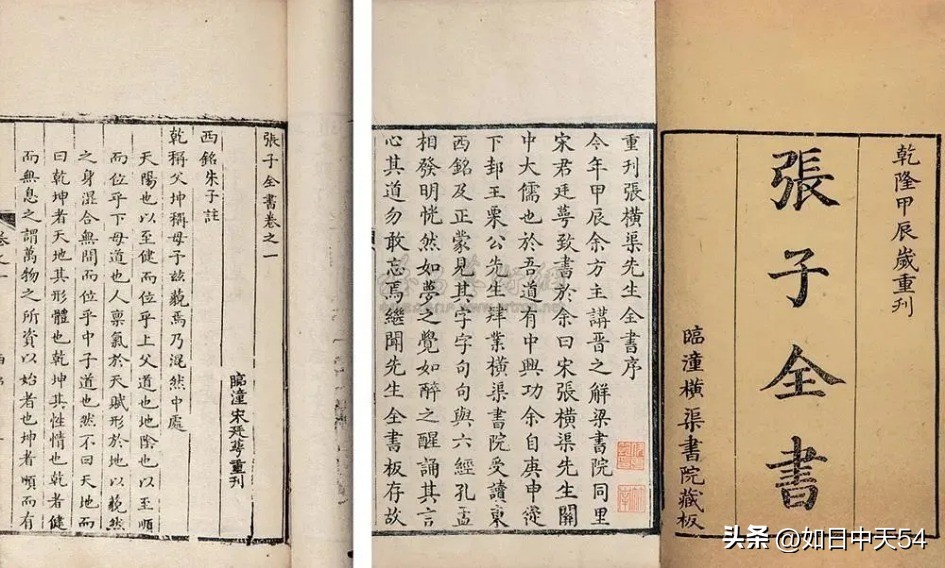 乾隆甲辰歲重刊
張子全書
臨潼橫渠書院藏板
重刊張橫渠先生全書序
今年甲辰余方主講晉之解梁書院同里
宋君廷萼致書於余曰宋張橫渠先生關
中大儒也於吾道有中興功余自庚申從
下邽王栗公先生肄業橫渠書院受讀東
西銘及正蒙見其字字句句與六經孔孟
相發明恍然如夢之覺如醉之醒誦其言
心其道勿敢忘焉繼聞先生全書板存故
張子全書卷之一
臨潼宋廷萼重刊
西銘朱子註
乾稱父坤稱母予茲藐焉乃混然中處
天陽也以至健而位乎上父道也地陰也以至順
而位乎下母道也人稟氣於天賦形於地以藐然
之身混合無間而位乎中子道也然不曰天地而
曰乾坤者天地其形體也乾坤其性情也乾者健
而無息之謂萬物之所資以始者也坤者順而有
头条 @如日中天54